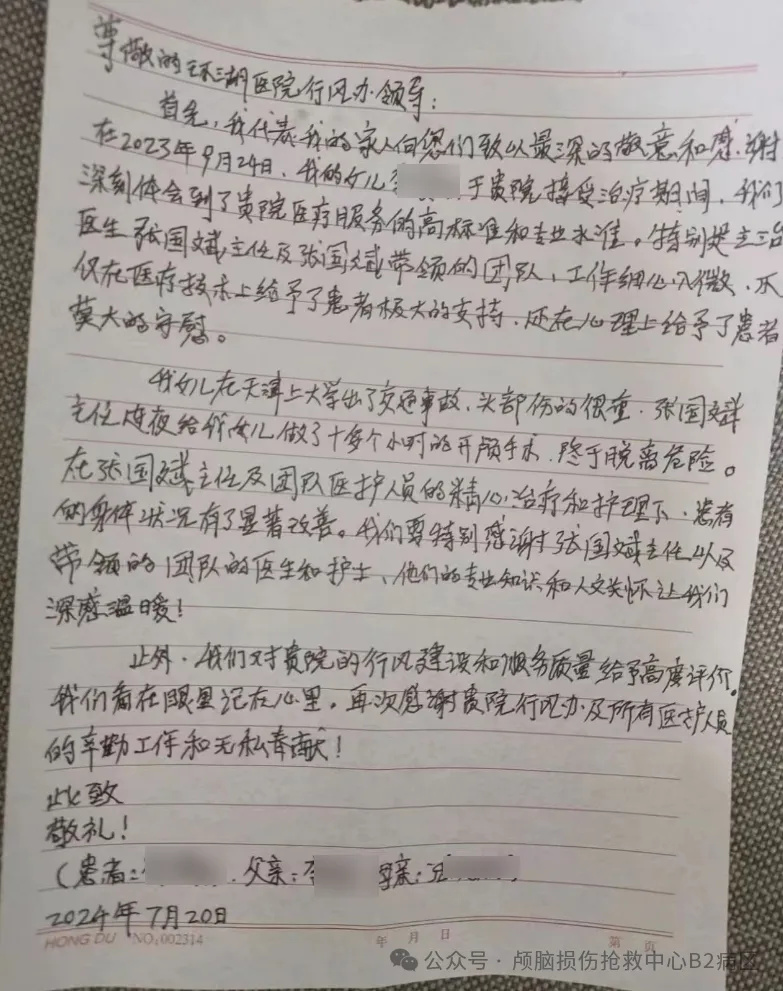 尊敬的环湖医院行风办领导：
首先，我代表我的家人向您们致以最深的敬意和感谢
在2023年9月24日，我的女儿于贵院接受治疗期间，我们
深刻体会到了贵院医疗服务的高标准和专业水准。特别是主治
医生张国斌主任及张国斌带领的团队，工作细心入微，不
仅在医疗技术上给予了患者极大的支持，还在心理上给予了患者
莫大的安慰。
我女儿在天津上大学出了交通事故，头部伤的很重，张国斌
主任连夜给我女儿做了十多个小时的开颅手术，终于脱离危险。
在张国斌主任及团队医护人员的精心治疗和护理下，患者
的身体状况有了显著改善。我们要特别感谢张国斌主任以及
带领的团队的医生和护士，他们的专业知识和人文关怀让我们
深感温暖！
此外，我们对贵院的行风建设和服务质量给予高度评价。
我们看在眼里记在心里。再次感谢贵院行风办及所有医护人员
的辛勤工作和无私奉献！
此致
敬礼！
（患者： ，父亲： 母亲： ）
2024年7月20日
HONG DU NO:002314 年 月 日 第 页
公众号·颅脑损伤抢救中心B2病区